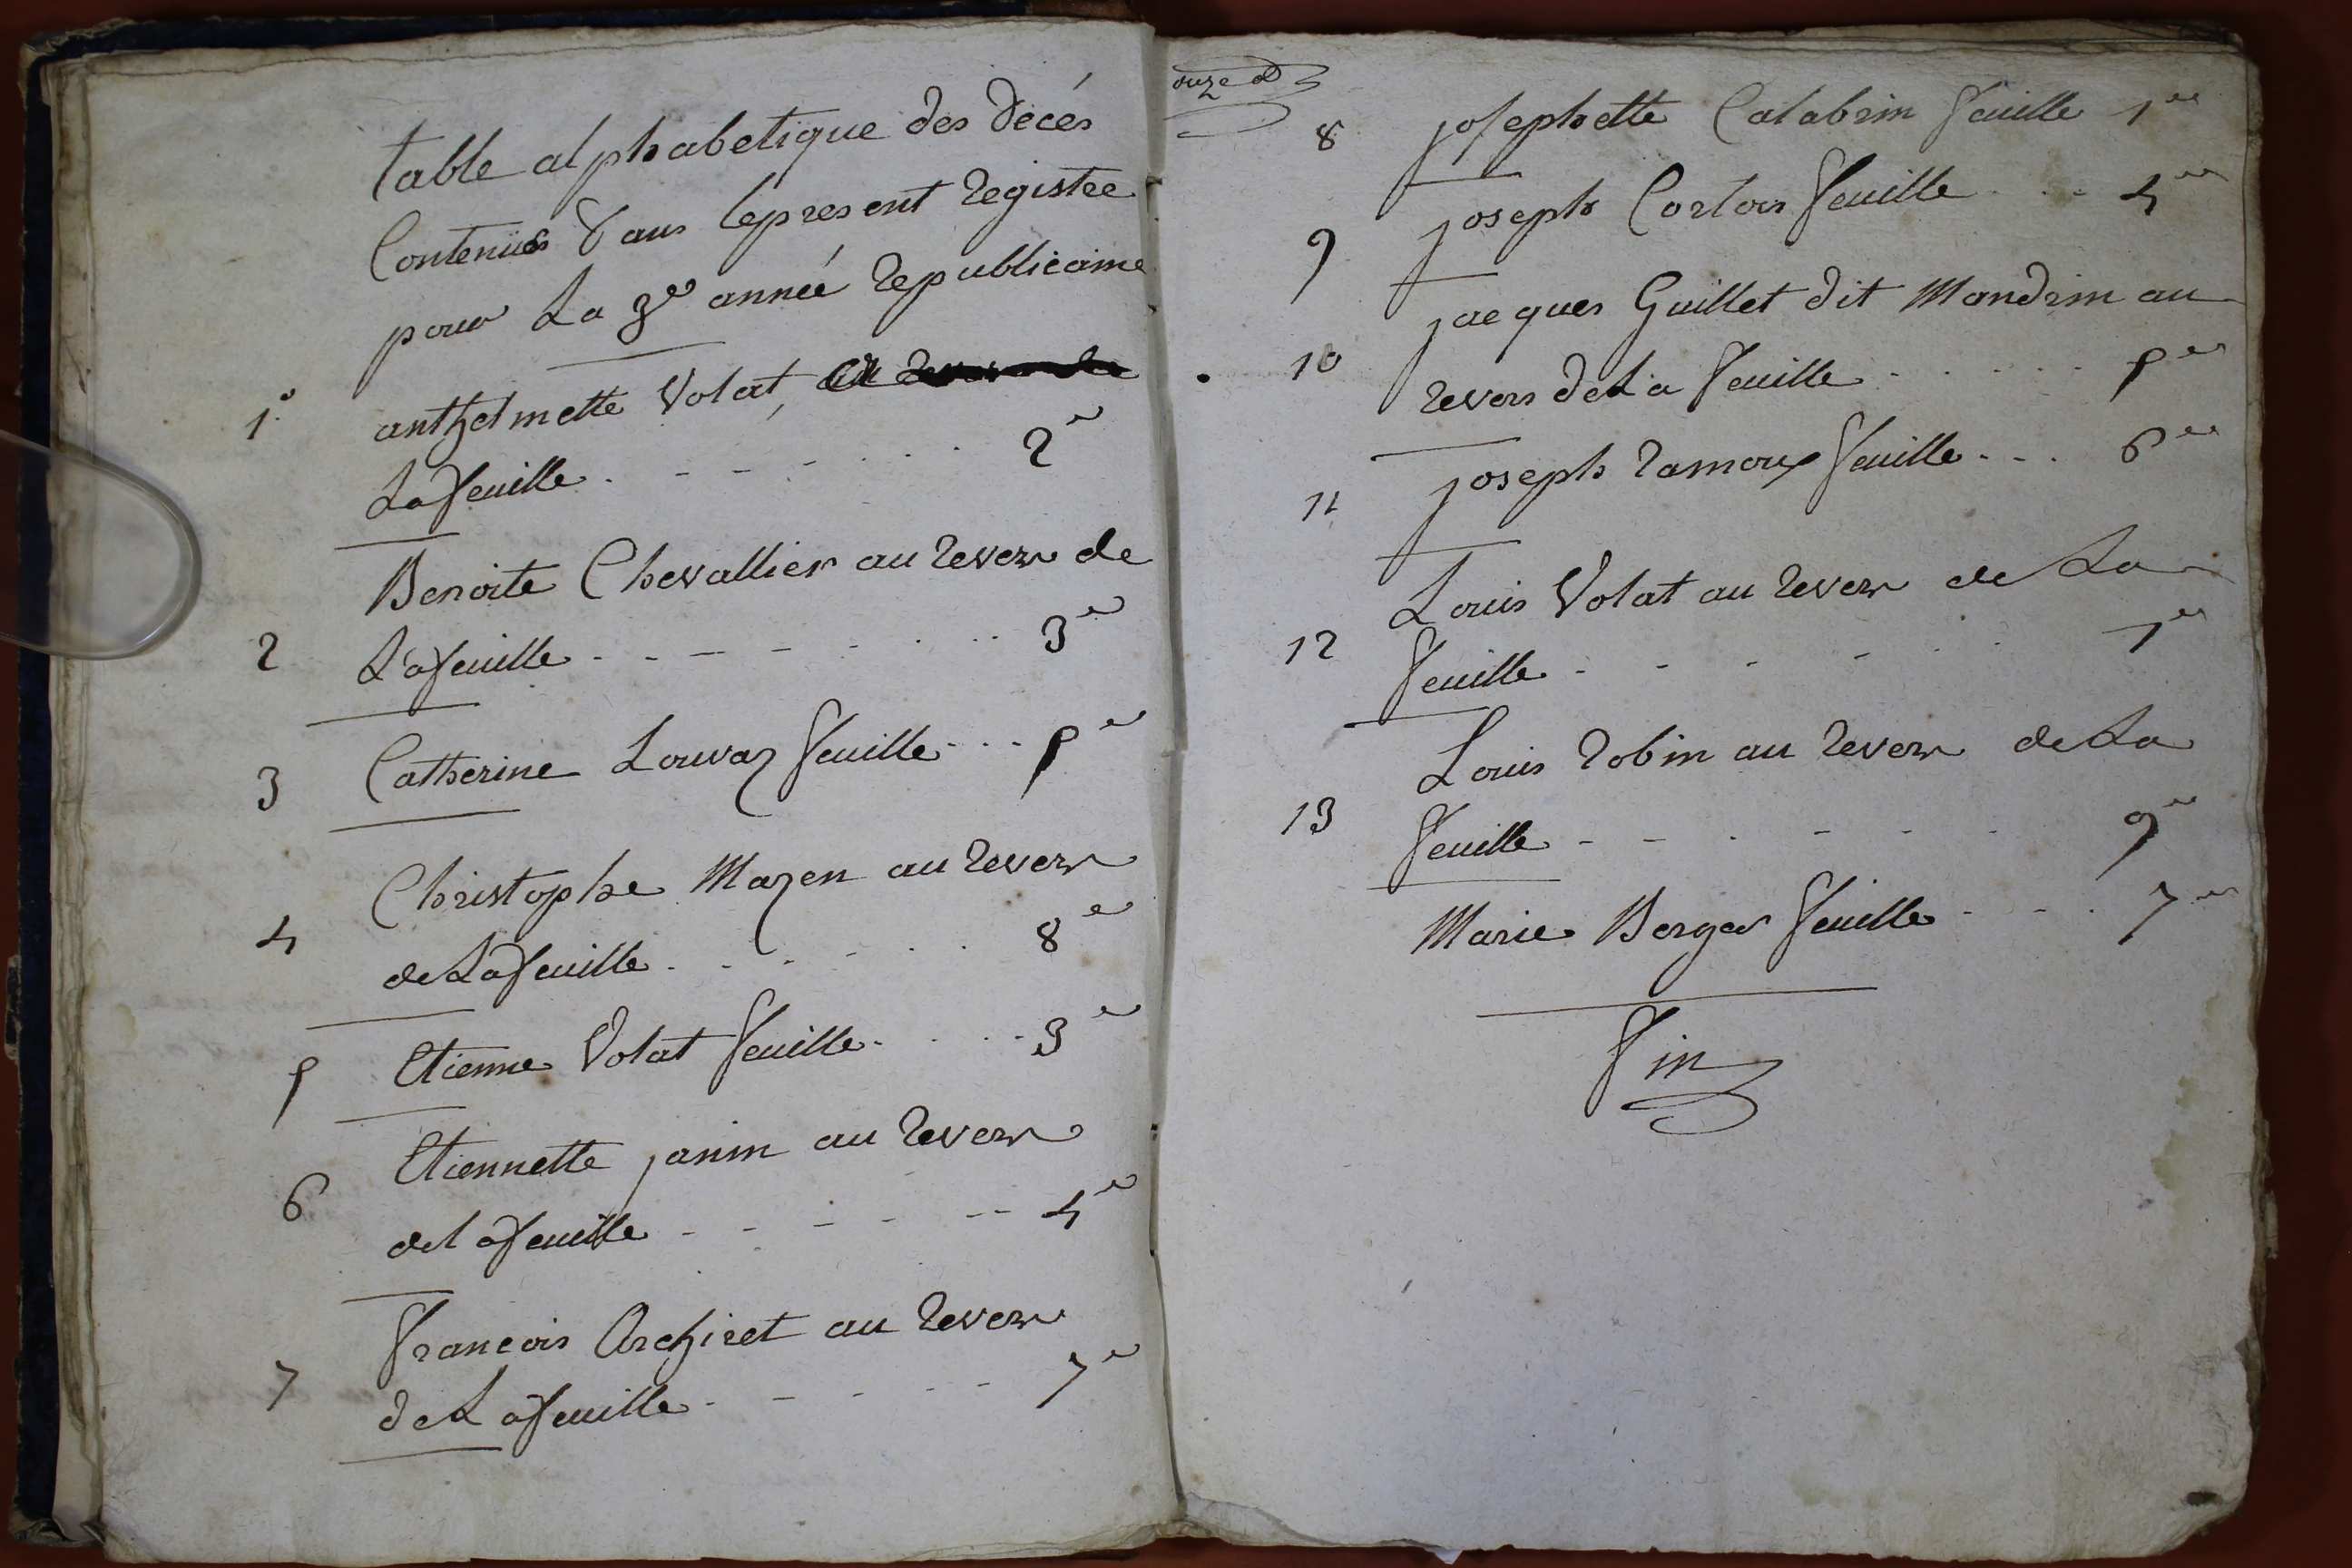 table alphabetique des décés
Contenües Dans lepresent Registre
pour La 3e année Republicaine
1° anthelmette Volat,
Lafeuille . - - - . . . 2e
Benoite Chevallier au Revers de
2 Lafeuille - - - - . . . 3e
3 Catherine Louvaz feuille - - - 5e
Christophe Mazen au Revers
4 de Lafeuille . . . - . . 8e
5 Etienne Volat feuille . . . . 3e
Etiennette janin au Revers
6 de lafeuille - - - - - - 4e
francois Archiret au Revers
7 de Lafeuille . - - - - - 7e
onze
8 josephette Calabrin feuille 1ere
9 joseph Corlois feuille . . - 4eme
jacques Guillet dit Mandrin au
10 revers deLa feuille . . . . . 5eme
11 joseph Ramoux feuille . . . 6eme
Louis Volat au Revers de La
12 feuille . - - - . . 1ere
Louis Robin au Revers de La
13 feuille - - . - - - 9eme
Marie Berger feuille . - . 7eme
Fin